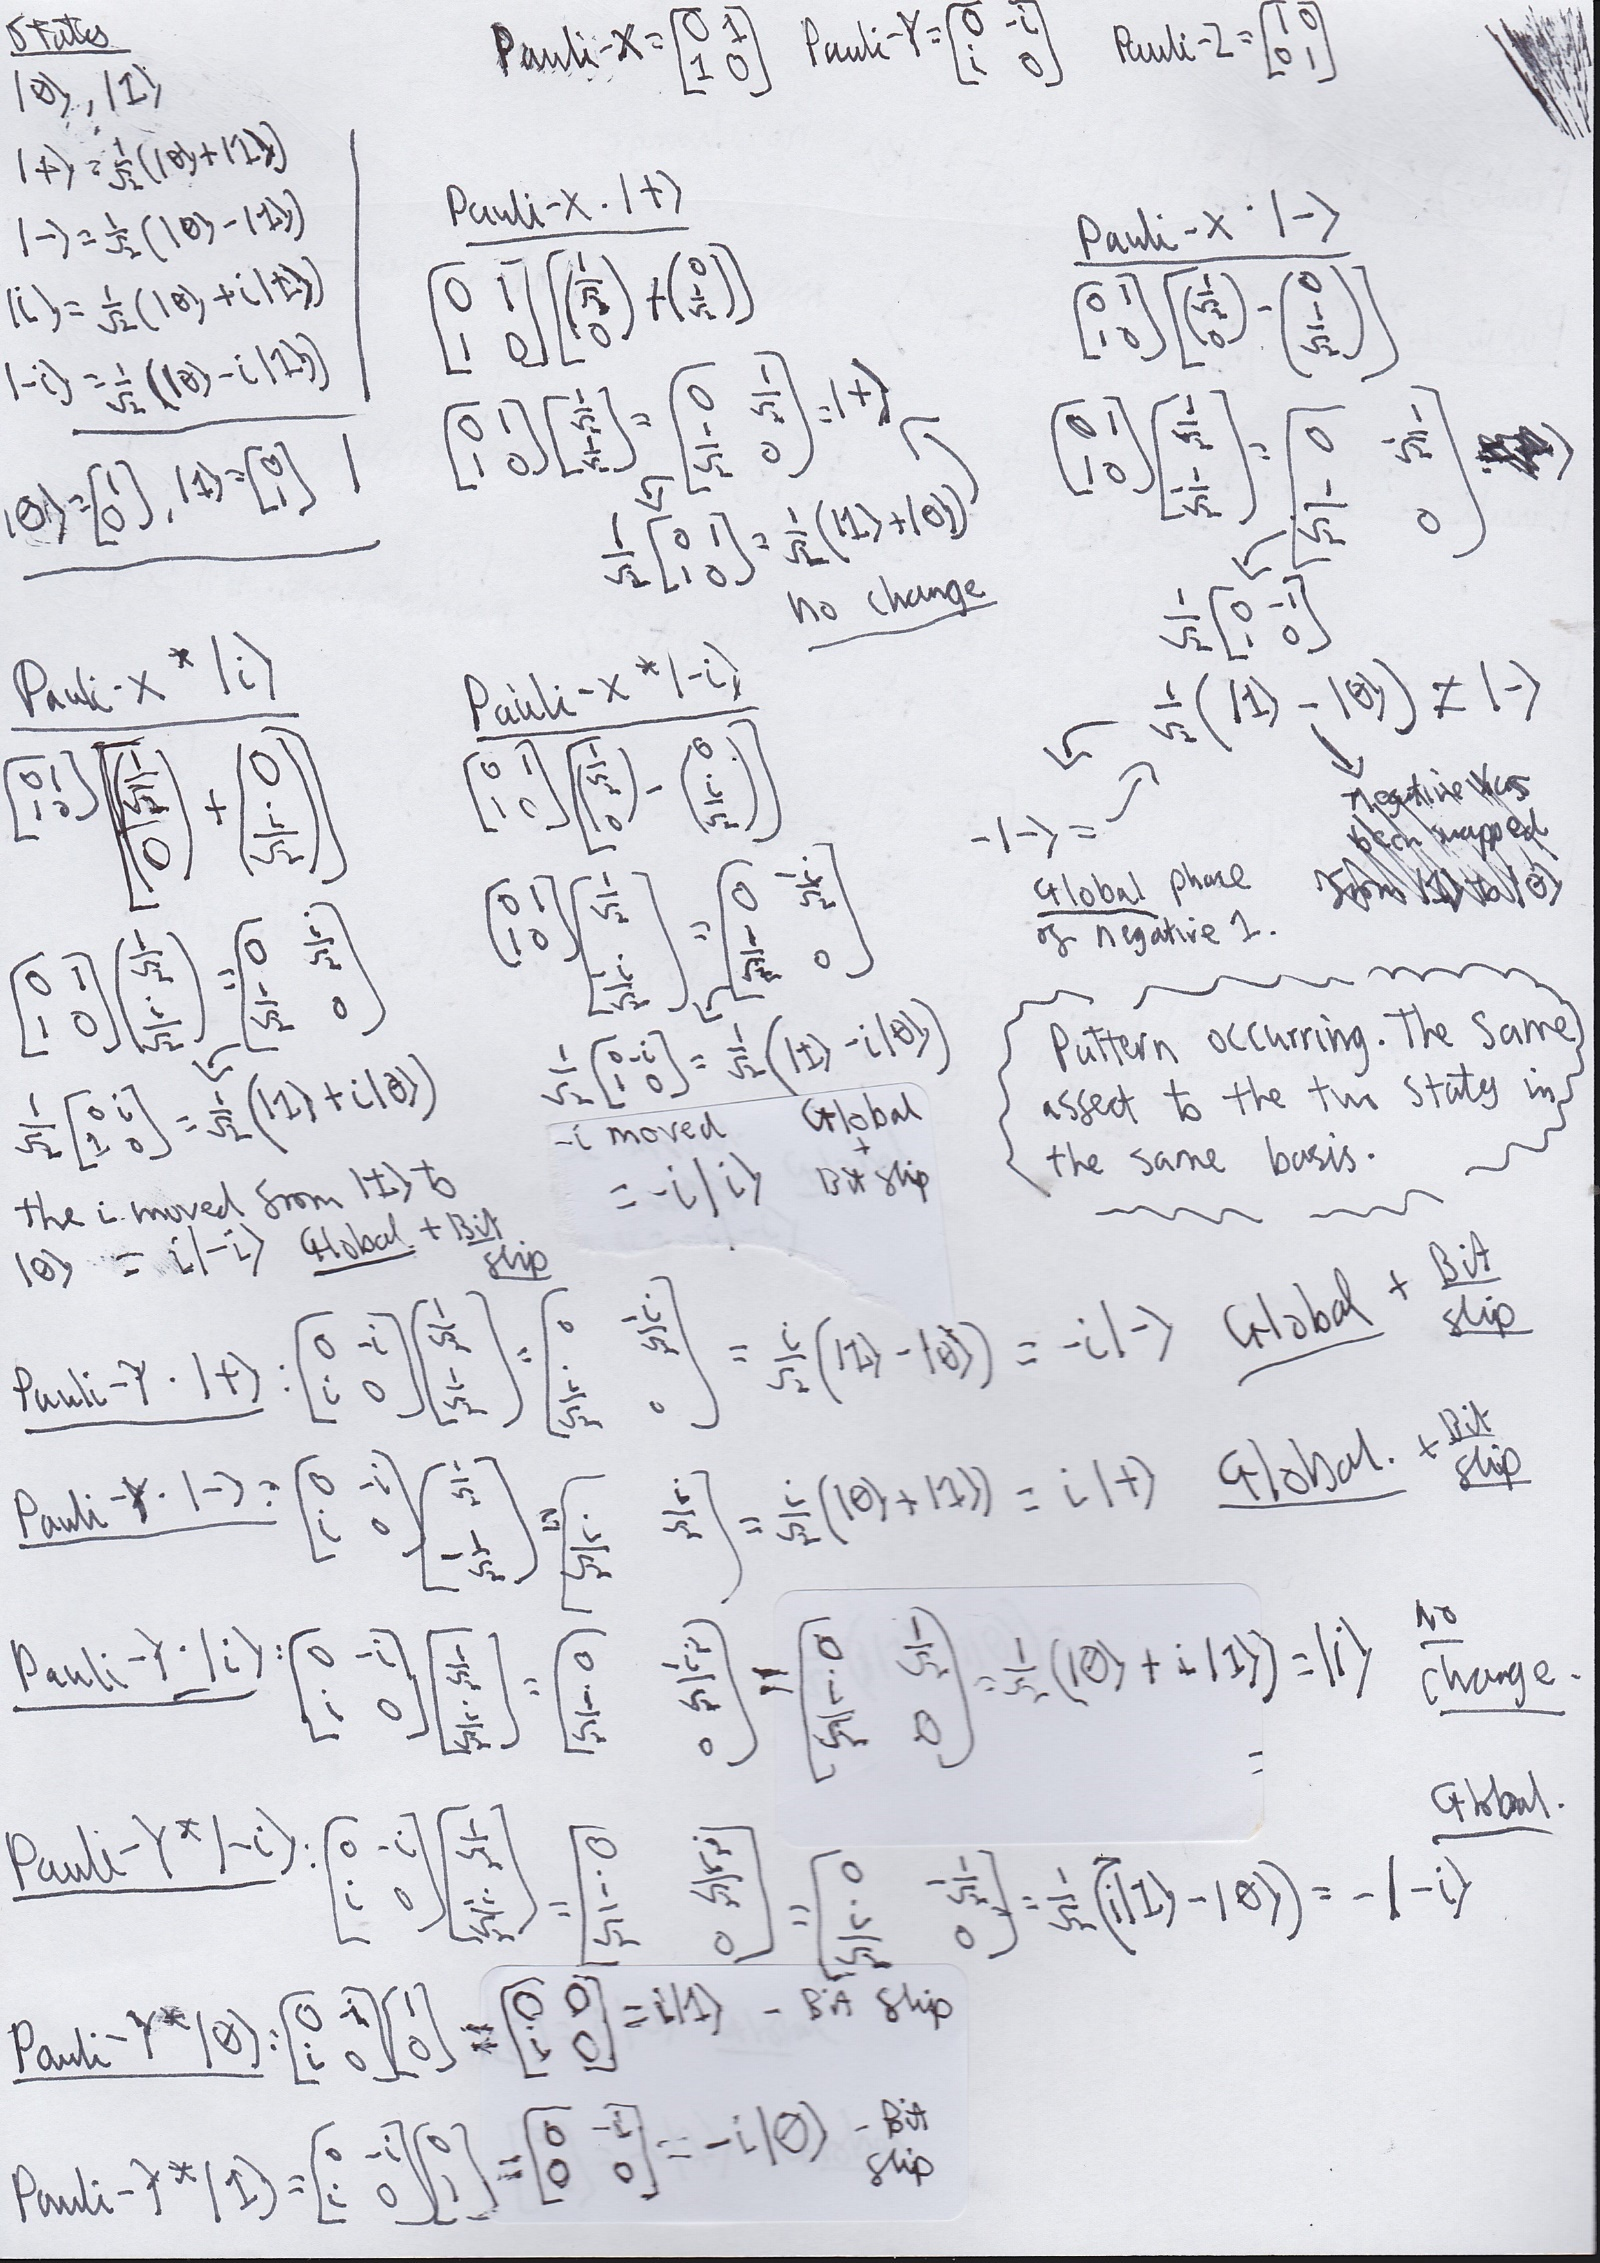 States
|0⟩, |1⟩
|+⟩ = 1/√2(|0⟩+|1⟩)
|-⟩ = 1/√2(|0⟩-|1⟩)
|i⟩ = 1/√2(|0⟩+i|1⟩)
|-i⟩ = 1/√2(|0⟩-i|1⟩)
|0⟩=[1 0], |1⟩=[0 1]
Pauli-X=[0 1 1 0] Pauli-Y=[0 -i i 0] Pauli-Z=[1 0 0 1]
Pauli-X·|+⟩
[0 1 1 0][(1/√2 0)+(0 1/√2)]
[0 1 1 0][1/√2 1/√2]=[0 1/√2 1/√2 0]=|+⟩
1/√2[0 1 1 0]=1/√2(|1⟩+|0⟩)
no change
Pauli-X·|-⟩
[0 1 1 0][(1/√2 0)-(0 1/√2)]
[0 1 1 0][1/√2 -1/√2]=[0 -1/√2 1/√2 0]
1/√2[0 -1 1 0]
1/√2(|1⟩-|0⟩) ≠ |-⟩
-|-⟩ =
Global phase
of negative 1.
negative has
been mapped
from |1⟩ to |0⟩
Pauli-X*|i⟩
[0 1 1 0][(1/√2 0)+(0 i/√2)]
[0 1 1 0][1/√2 i/√2]=[0 i/√2 1/√2 0]
1/√2[0 i 1 0]=1/√2(|1⟩+i|0⟩)
the i moved from |1⟩ to
|0⟩ = i|-i⟩ Global + Bit
flip
Pauli-X*|-i⟩
[0 1 1 0][(1/√2 0)-(0 i/√2)]
[0 1 1 0][1/√2 -i/√2]=[0 -i/√2 1/√2 0]
1/√2[0 -i 1 0]=1/√2(|1⟩-i|0⟩)
-i moved Global
+
= -i|i⟩ Bit flip
Pattern occurring. The same
assect to the two states in
the same basis.
Pauli-Y·|+⟩:[0 -i i 0][1/√2 1/√2]=[0 -i/√2 i/√2 0]=i/√2(|1⟩-|0⟩)=-i|-⟩ Global + Bit
flip
Pauli-Y·|-⟩:[0 -i i 0][1/√2 -1/√2]=[-i/√2 i/√2]=i/√2(|0⟩+|1⟩)=i|+⟩ Global. + Bit
flip
Pauli-Y·|i⟩:[0 -i i 0][1/√2 i/√2]=[0 -i·i/√2 i·1/√2 0]=[0 1/√2 i/√2 0]=1/√2(|0⟩+i|1⟩)=|i⟩ No
change.
=
Global.
Pauli-Y*|-i⟩:[0 -i i 0][1/√2 -i/√2]=[0 i·i/√2 i·1/√2 0]=[0 -1/√2 i/√2 0]=1/√2(i|1⟩-|0⟩)=-|-i⟩
Pauli-Y*|0⟩:[0 -i i 0][1 0]=[0 0 i 0]=i|1⟩ - Bit flip
Pauli-Y*|1⟩=[0 -i i 0][0 1]=[0 -i 0 0]=-i|0⟩ - Bit
flip